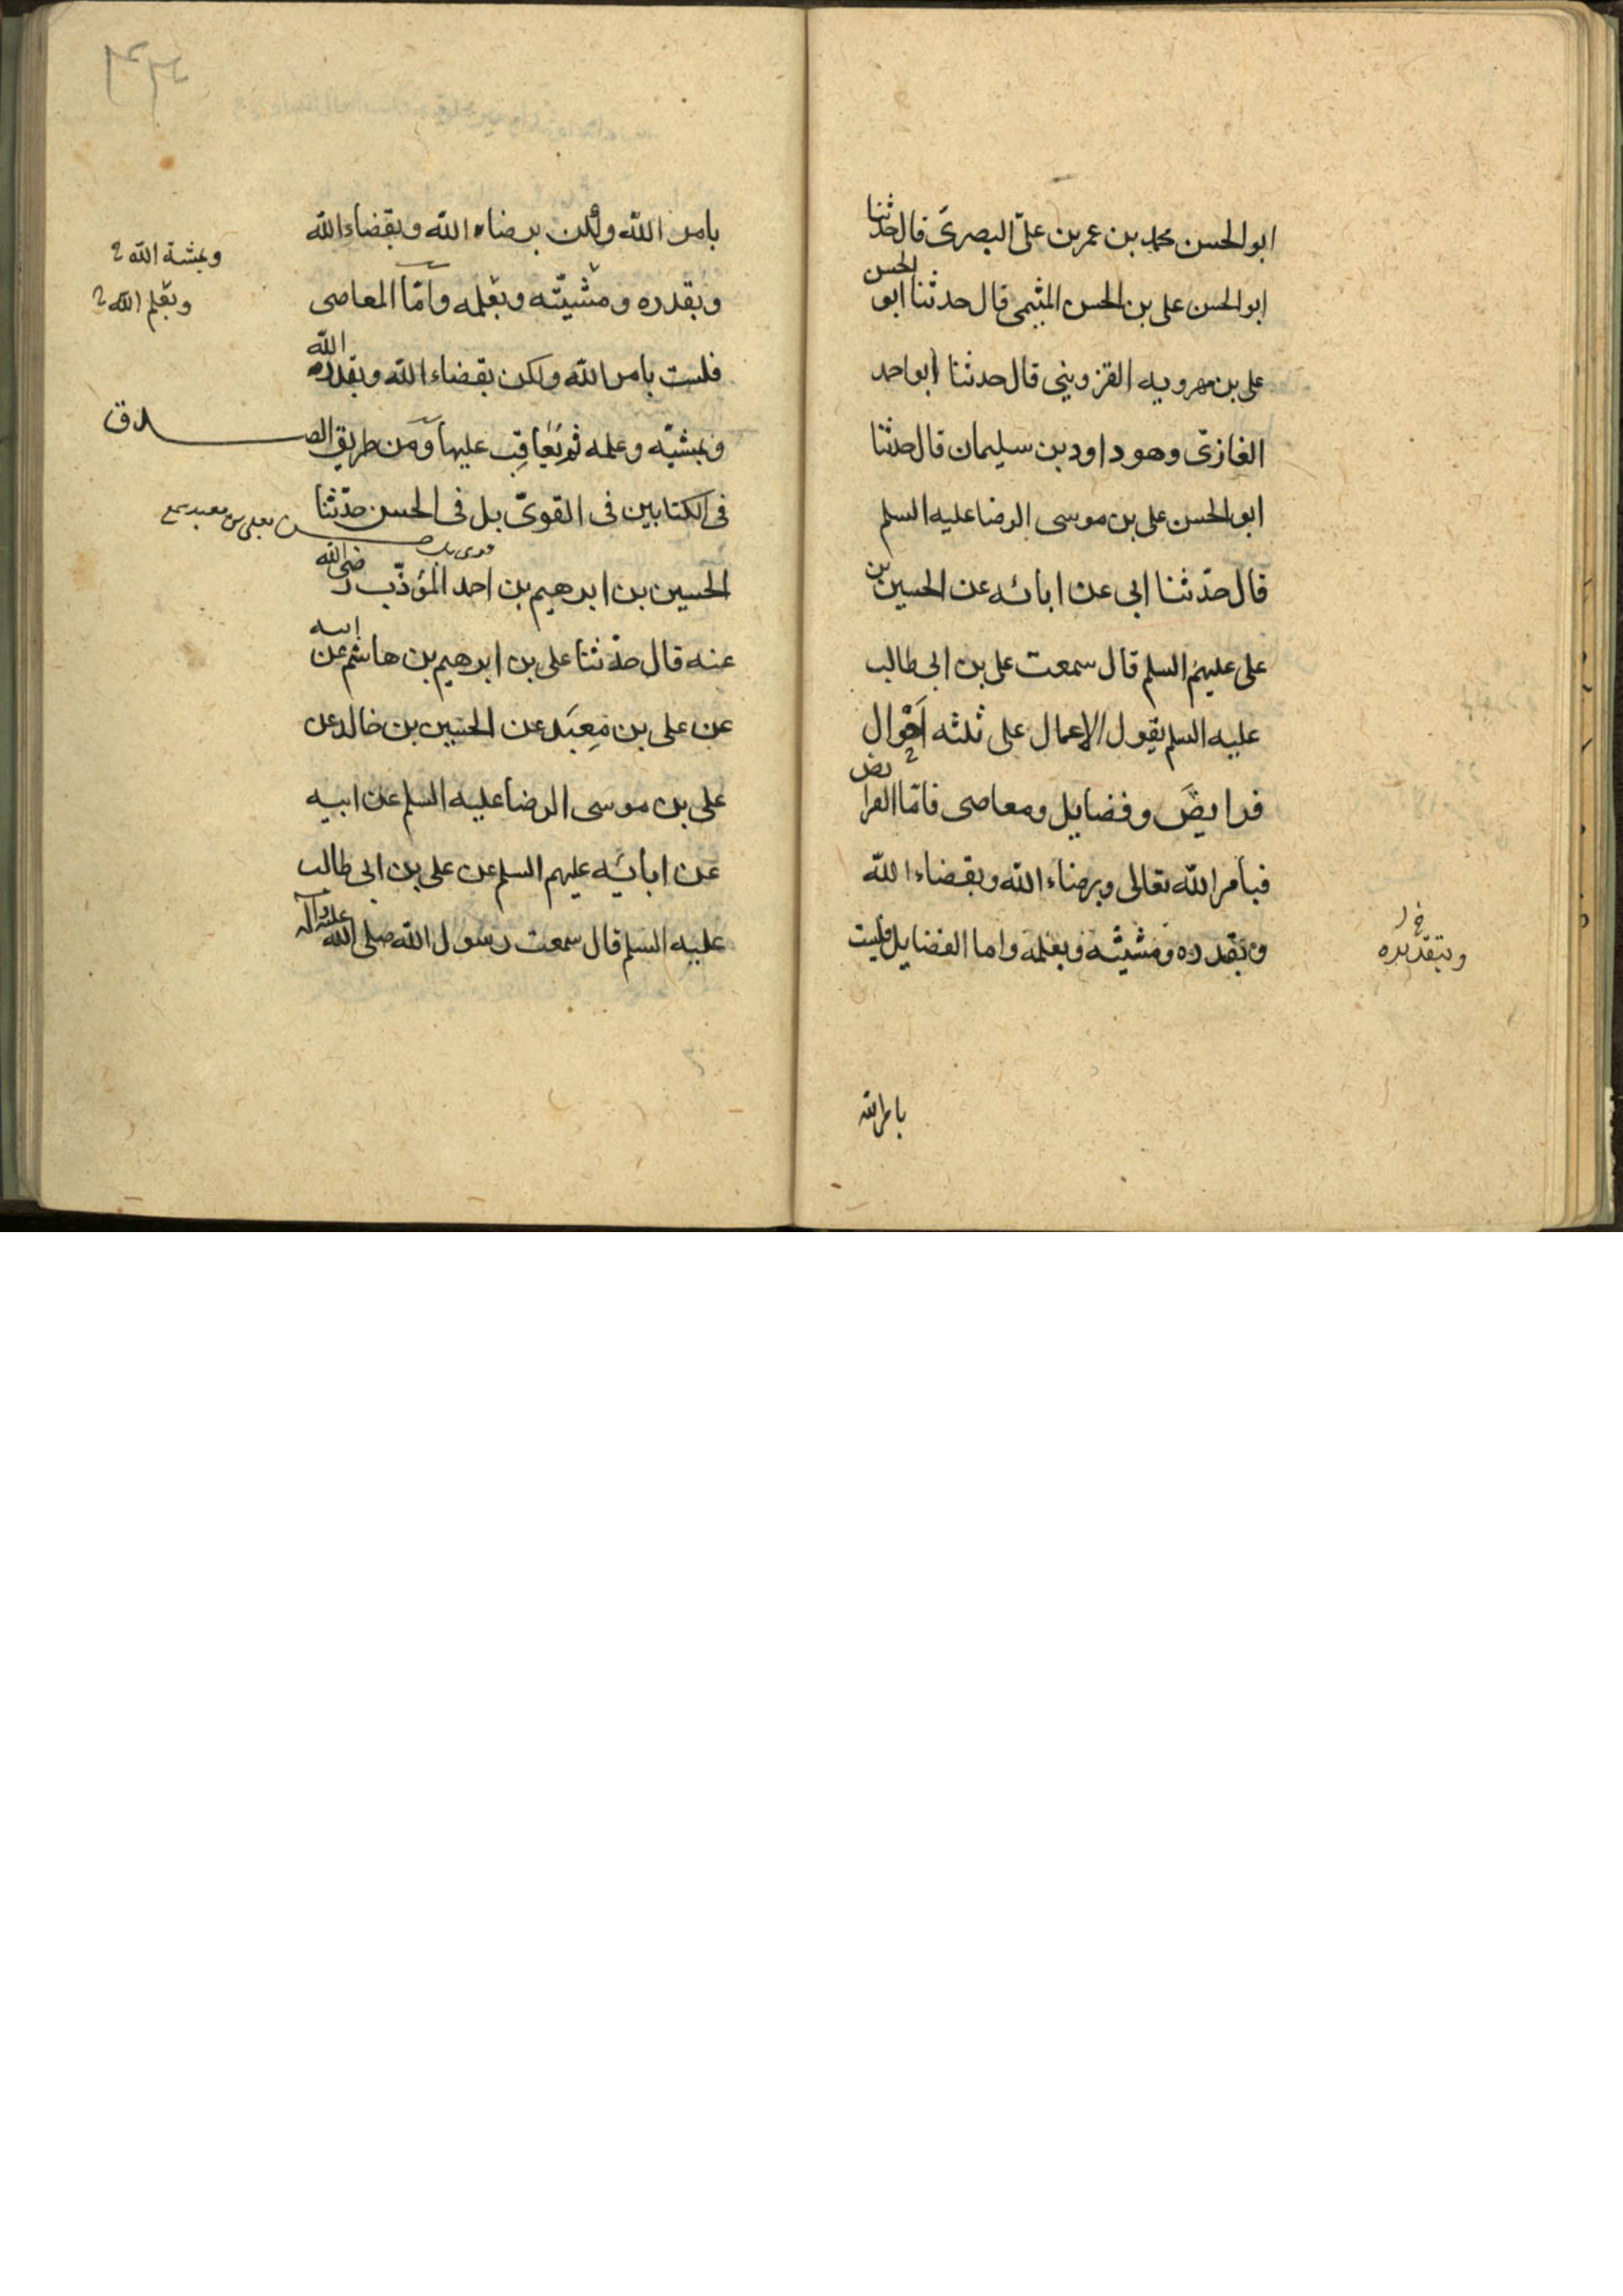 ابو الحسن محمد بن عمر بن علىّ البصرىّ قال حدثنا
ابو الحسن على بن الحسن المیثمى قال حدثنا ابو الحسن
على بن مهرويه القزوينى قال حدثنا ابو احمد
الغازىّ وهو داود بن سليمان قال حدثنا
ابو الحسن على بن موسى الرضا عليه السلم
قال حدّثنا ابى عن ابائه عن الحسين بن
على عليهم السلم قال سمعت على بن ابى طالب
عليه السلم يقول الاعمال على ثلثه اَحْوال
فرايضَ وفضايل ومعاصى فامّا الفرايض
فبأمر الله تعالى وبرضاء الله وبقضاء الله
وبقدره ومشيته وبعلمه واما الفضايل فليست
وبتقديره
بامر الله
بامر الله ولكن برضاء الله وبقضاء الله
وبقدره ومشيّته وبعلمه وامّا المعاصى
وبمشية الله
وبعلم الله
فليست بامر الله ولكن بقضاء الله وبقدر الله
وبمشيّه وعلمه ثم يُعاقِب عليها ومن طريق الصدق
فى الكتابين فى القوىّ بل فى الحسن حدّثنا
الحسين بن ابرهيم بن احمد المؤدّب رضى الله
عنه قال حدّثنا على بن ابرهيم بن هاشم عن ابيه
عن على بن مَعبَد عن الحسين بن خالد عن
على بن موسى الرضا عليه السلم عن ابيه
عن ابائِه عليهم السلم عن على بن ابى طالب
عليه السلم قال سمعت رسول الله صلى الله عليه وآله